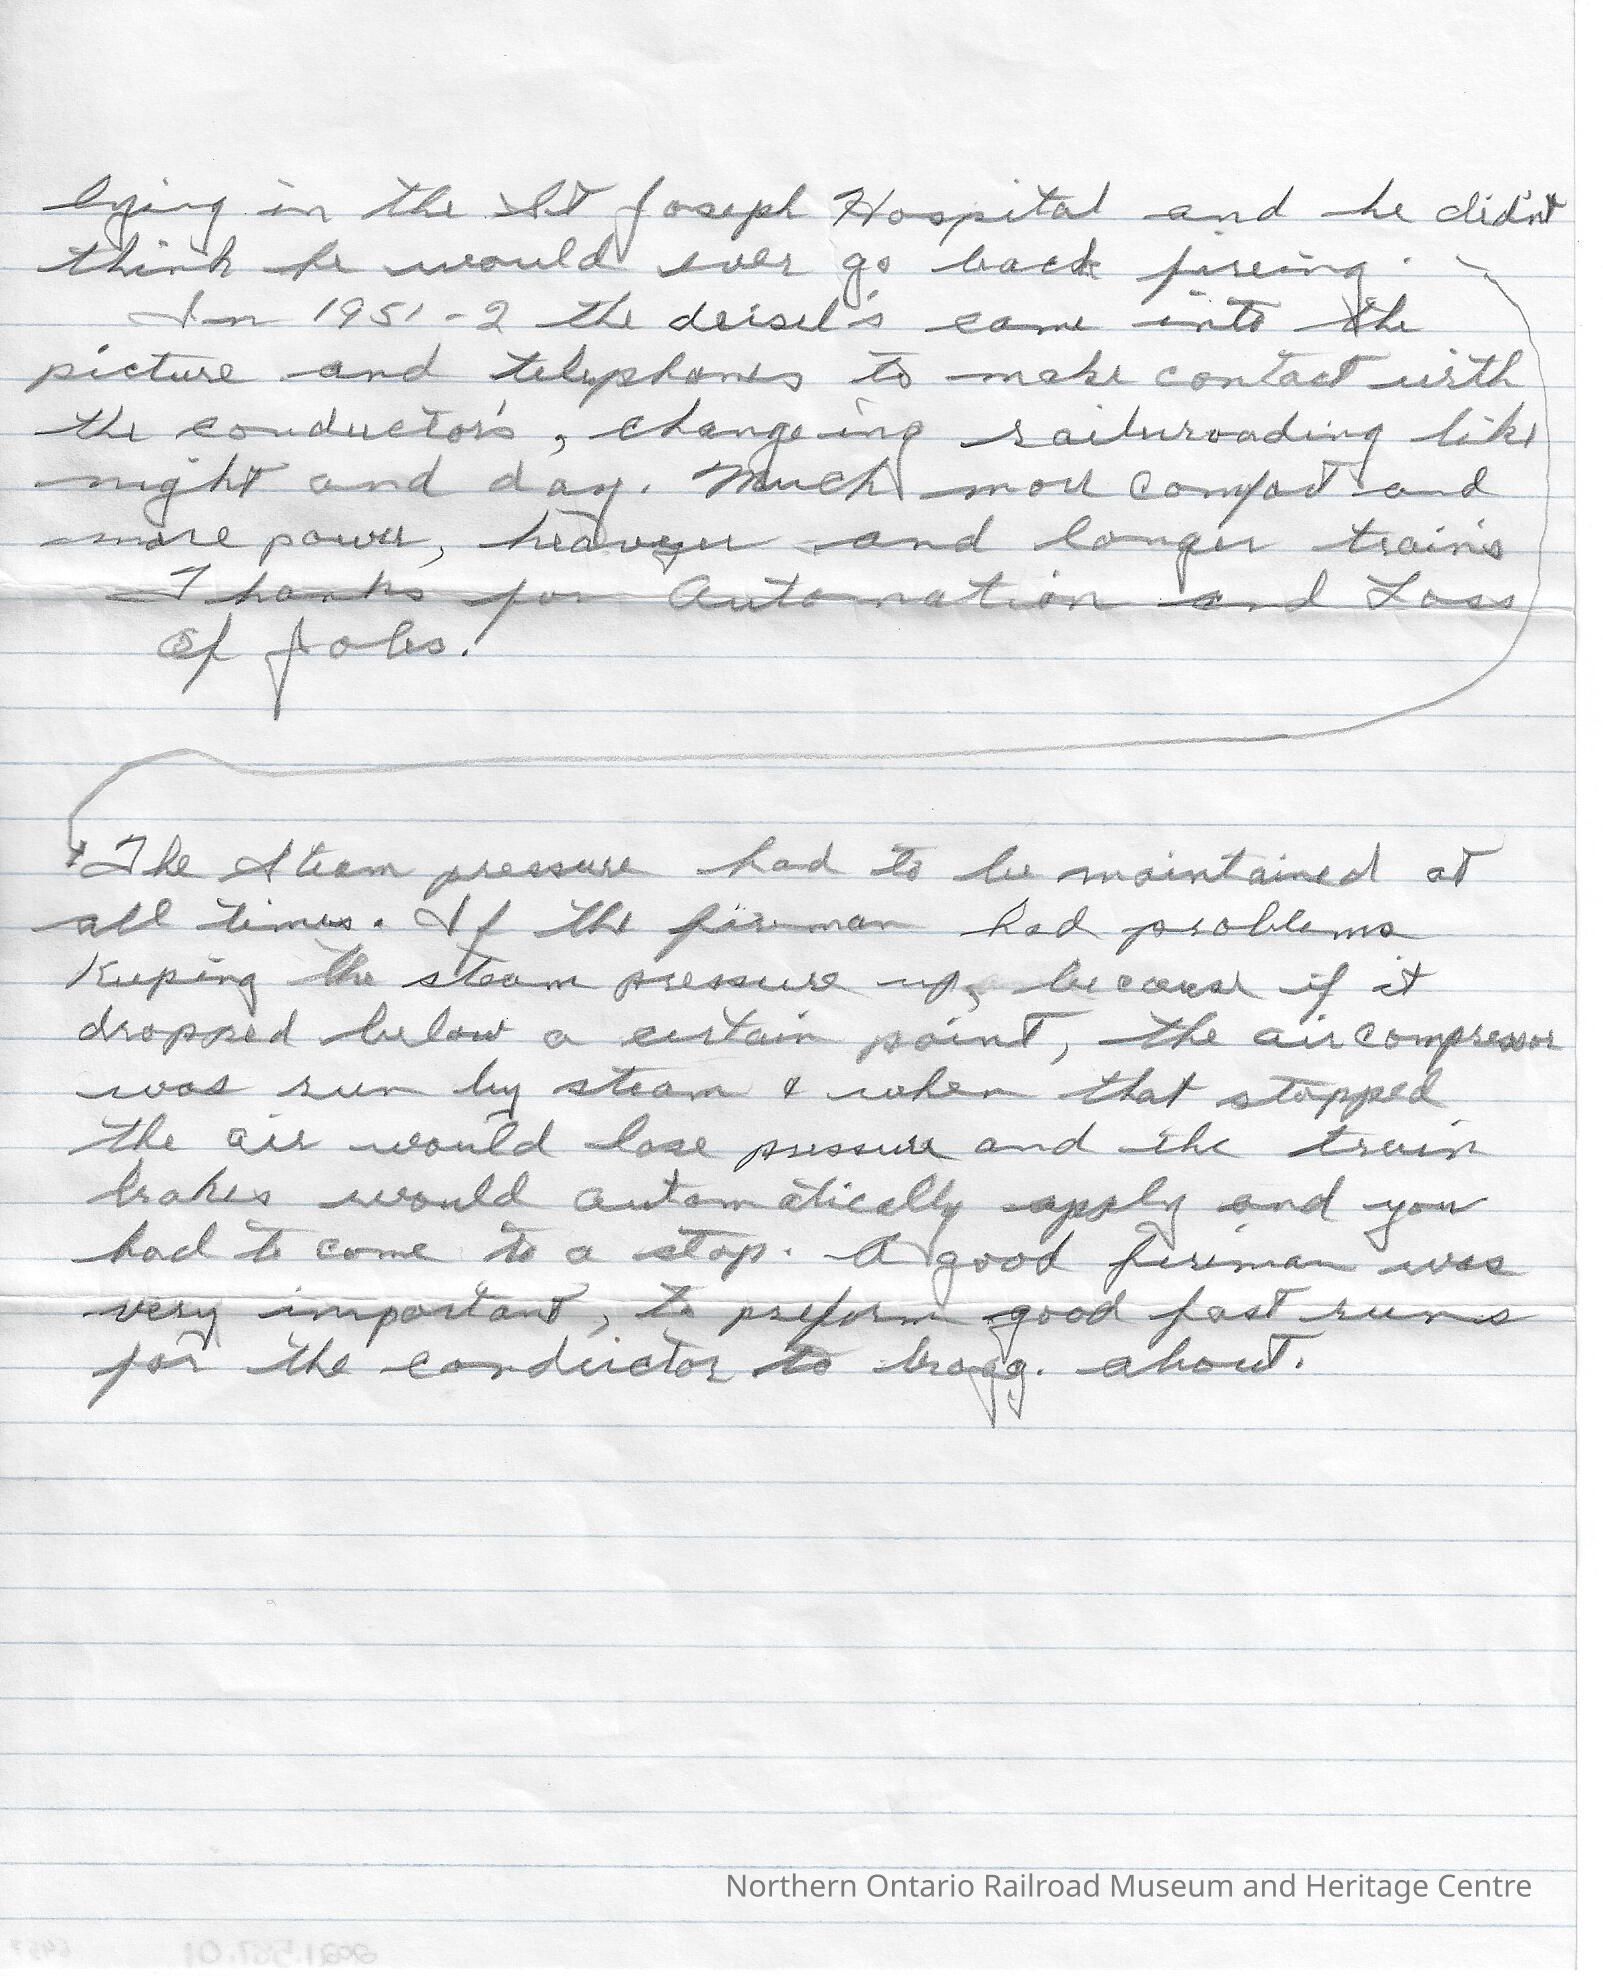 lying in the St Joseph Hospital and he didn't
think he would ever go back fireing.
In 1951-2 the deisel's came into the
picture and telephones to make contact with
the conductor's, changeing railuroading like
night and day. Much more comfort and
more power, heavyer and longer trains
Thanks for Automation and Loss
Of Jobs.
The Steam pressure had to be maintained at
all times. If the fireman had problems
Keeping the steam pressure up, because if it
dropped below a certain point, the air compressor
was run by steam & when that stopped
the air would lose pressure and the train
brakes would automatically apply and you
had to come to a stop. A good fireman was
very important, to preform good fast runs
for the conductor to bragg. about.
Northern Ontario Railroad Museum and Heritage Centre